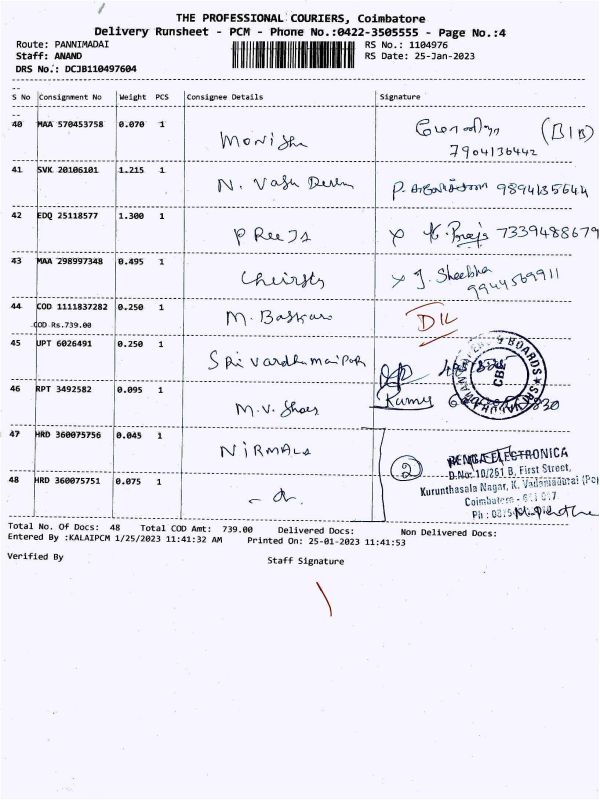 THE PROFESSIONAL COURIERS, Coimbatore
Delivery Runsheet - PCM - Phone No.:0422-3505555 - Page No.:4
Route: PANNIMADAI RS No.: 1104976
Staff: ANAND RS Date: 25-Jan-2023
DRS No.: DCJB110497604
S No Consignment No Weight PCS Consignee Details Signature
40 MAA 570453758 0.070 1 (BIB)
7904136442
41 SVK 20106101 1.215 1 N. Vasu 9894135644
42 EDQ 25118577 1.300 1 PReeJs x 7339488679
43 MAA 298997348 0.495 1 x J. Sheebha
9944569911
44 COD 1111837282 0.250 1 M. Baskar D/L
COD Rs.739.00
45 UPT 6026491 0.250 1 Sri
46 RPT 3492582 0.095 1 M.V. Kumar
BOARDS ★ SRI
CBE
47 HRD 360075756 0.045 1 NIRMALA
48 HRD 360075751 0.075 1 - do - 2
RENGA ELECTRONICA
D.No: 10/261 B, First Street,
Kurunthasala Nagar, K. Vadamadurai (Po)
Coimbatore - 641 017
Ph :
Total No. Of Docs: 48 Total COD Amt: 739.00 Delivered Docs: Non Delivered Docs:
Entered By :KALAIPCM 1/25/2023 11:41:32 AM Printed On: 25-01-2023 11:41:53
Verified By Staff Signature